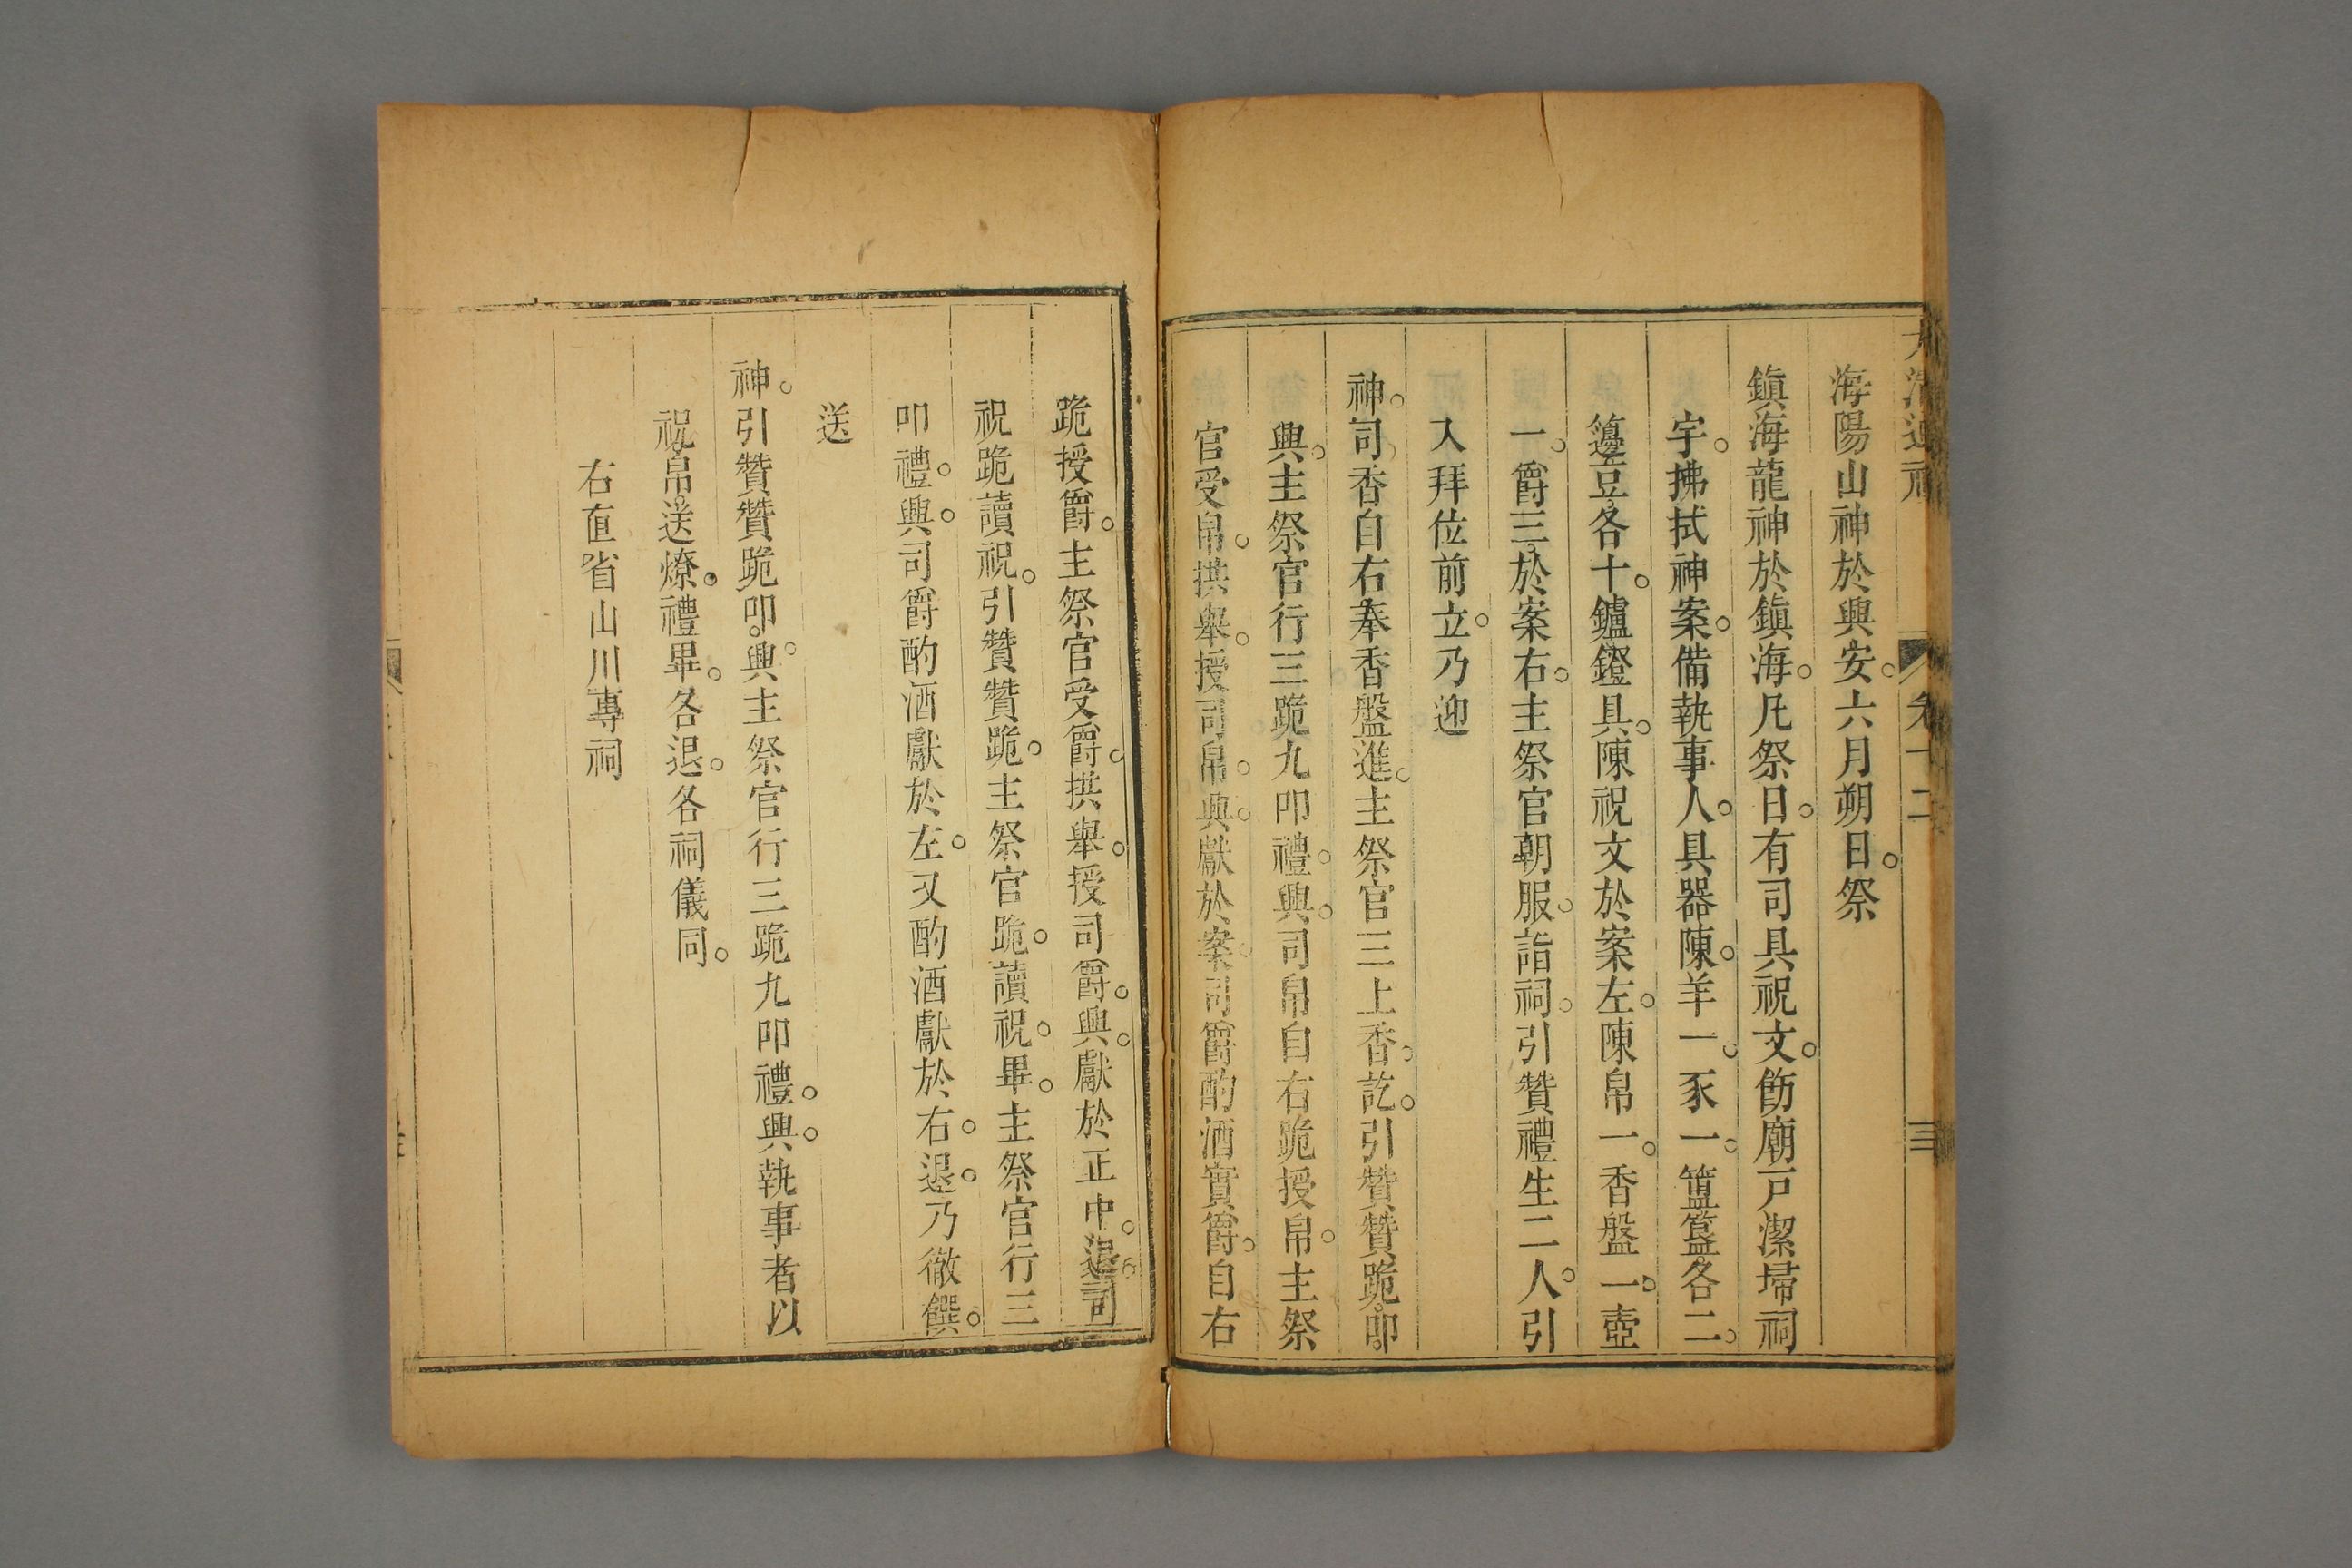 大清通禮 卷十二 三
海陽山神於興安。六月朔日。祭
鎮海龍神於鎮海。凡祭日。有司具祝文。飭廟戶潔埽祠
宇。拂拭神案。備執事人。具器陳。羊一。豕一。簠簋。各二。
籩豆。各十。鑪鐙具。陳祝文於案左。陳帛一。香盤一。壺
一。爵三。於案右。主祭官朝服。詣祠。引贊禮生二人。引
入拜位前立。乃迎
神。司香自右奉香盤進。主祭官三上香。訖。引贊贊跪。叩。
興。主祭官行三跪九叩禮。興。司帛自右跪授帛。主祭
官受帛。拱舉。授司帛。興。獻於案。司爵酌酒實爵。自右
跪授爵。主祭官受爵。拱舉。授司爵。興。獻於正中。退。司
祝跪讀祝。引贊贊跪。主祭官跪。讀祝。畢。主祭官行三
叩禮。興。司爵酌酒獻於左。又酌酒獻於右。退。乃徹饌。
送
神。引贊贊跪叩。興。主祭官行三跪九叩禮。興。執事者以
祝帛。送燎。禮畢。各退。各祠儀同。
右直省山川專祠